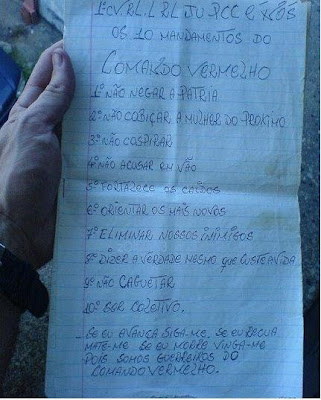 OS 10 MANDAMENTOS DO
COMANDO VERMELHO
1º NÃO NEGAR A PATRIA
2º NÃO COBIÇAR A MULHER DO PROXIMO
3º NÃO COSPIRAR
4º NÃO ACUSAR EM VÃO
5º FORTALECE OS CAÍDOS
6º ORIENTAR OS MAIS NOVOS
7º ELIMINAR NOSSOS INIMIGOS
8º DIZER A VERDADE MESMO QUE CUSTE A VIDA
9º NÃO CAGUETAR
10º SER COLETIVO.
_ SE EU AVANÇA SIGA-ME, SE EU RECUA
MATE-ME SE EU MORRE VINGA-ME
POIS SOMOS GUERREIROS DO
COMANDO VERMELHO.